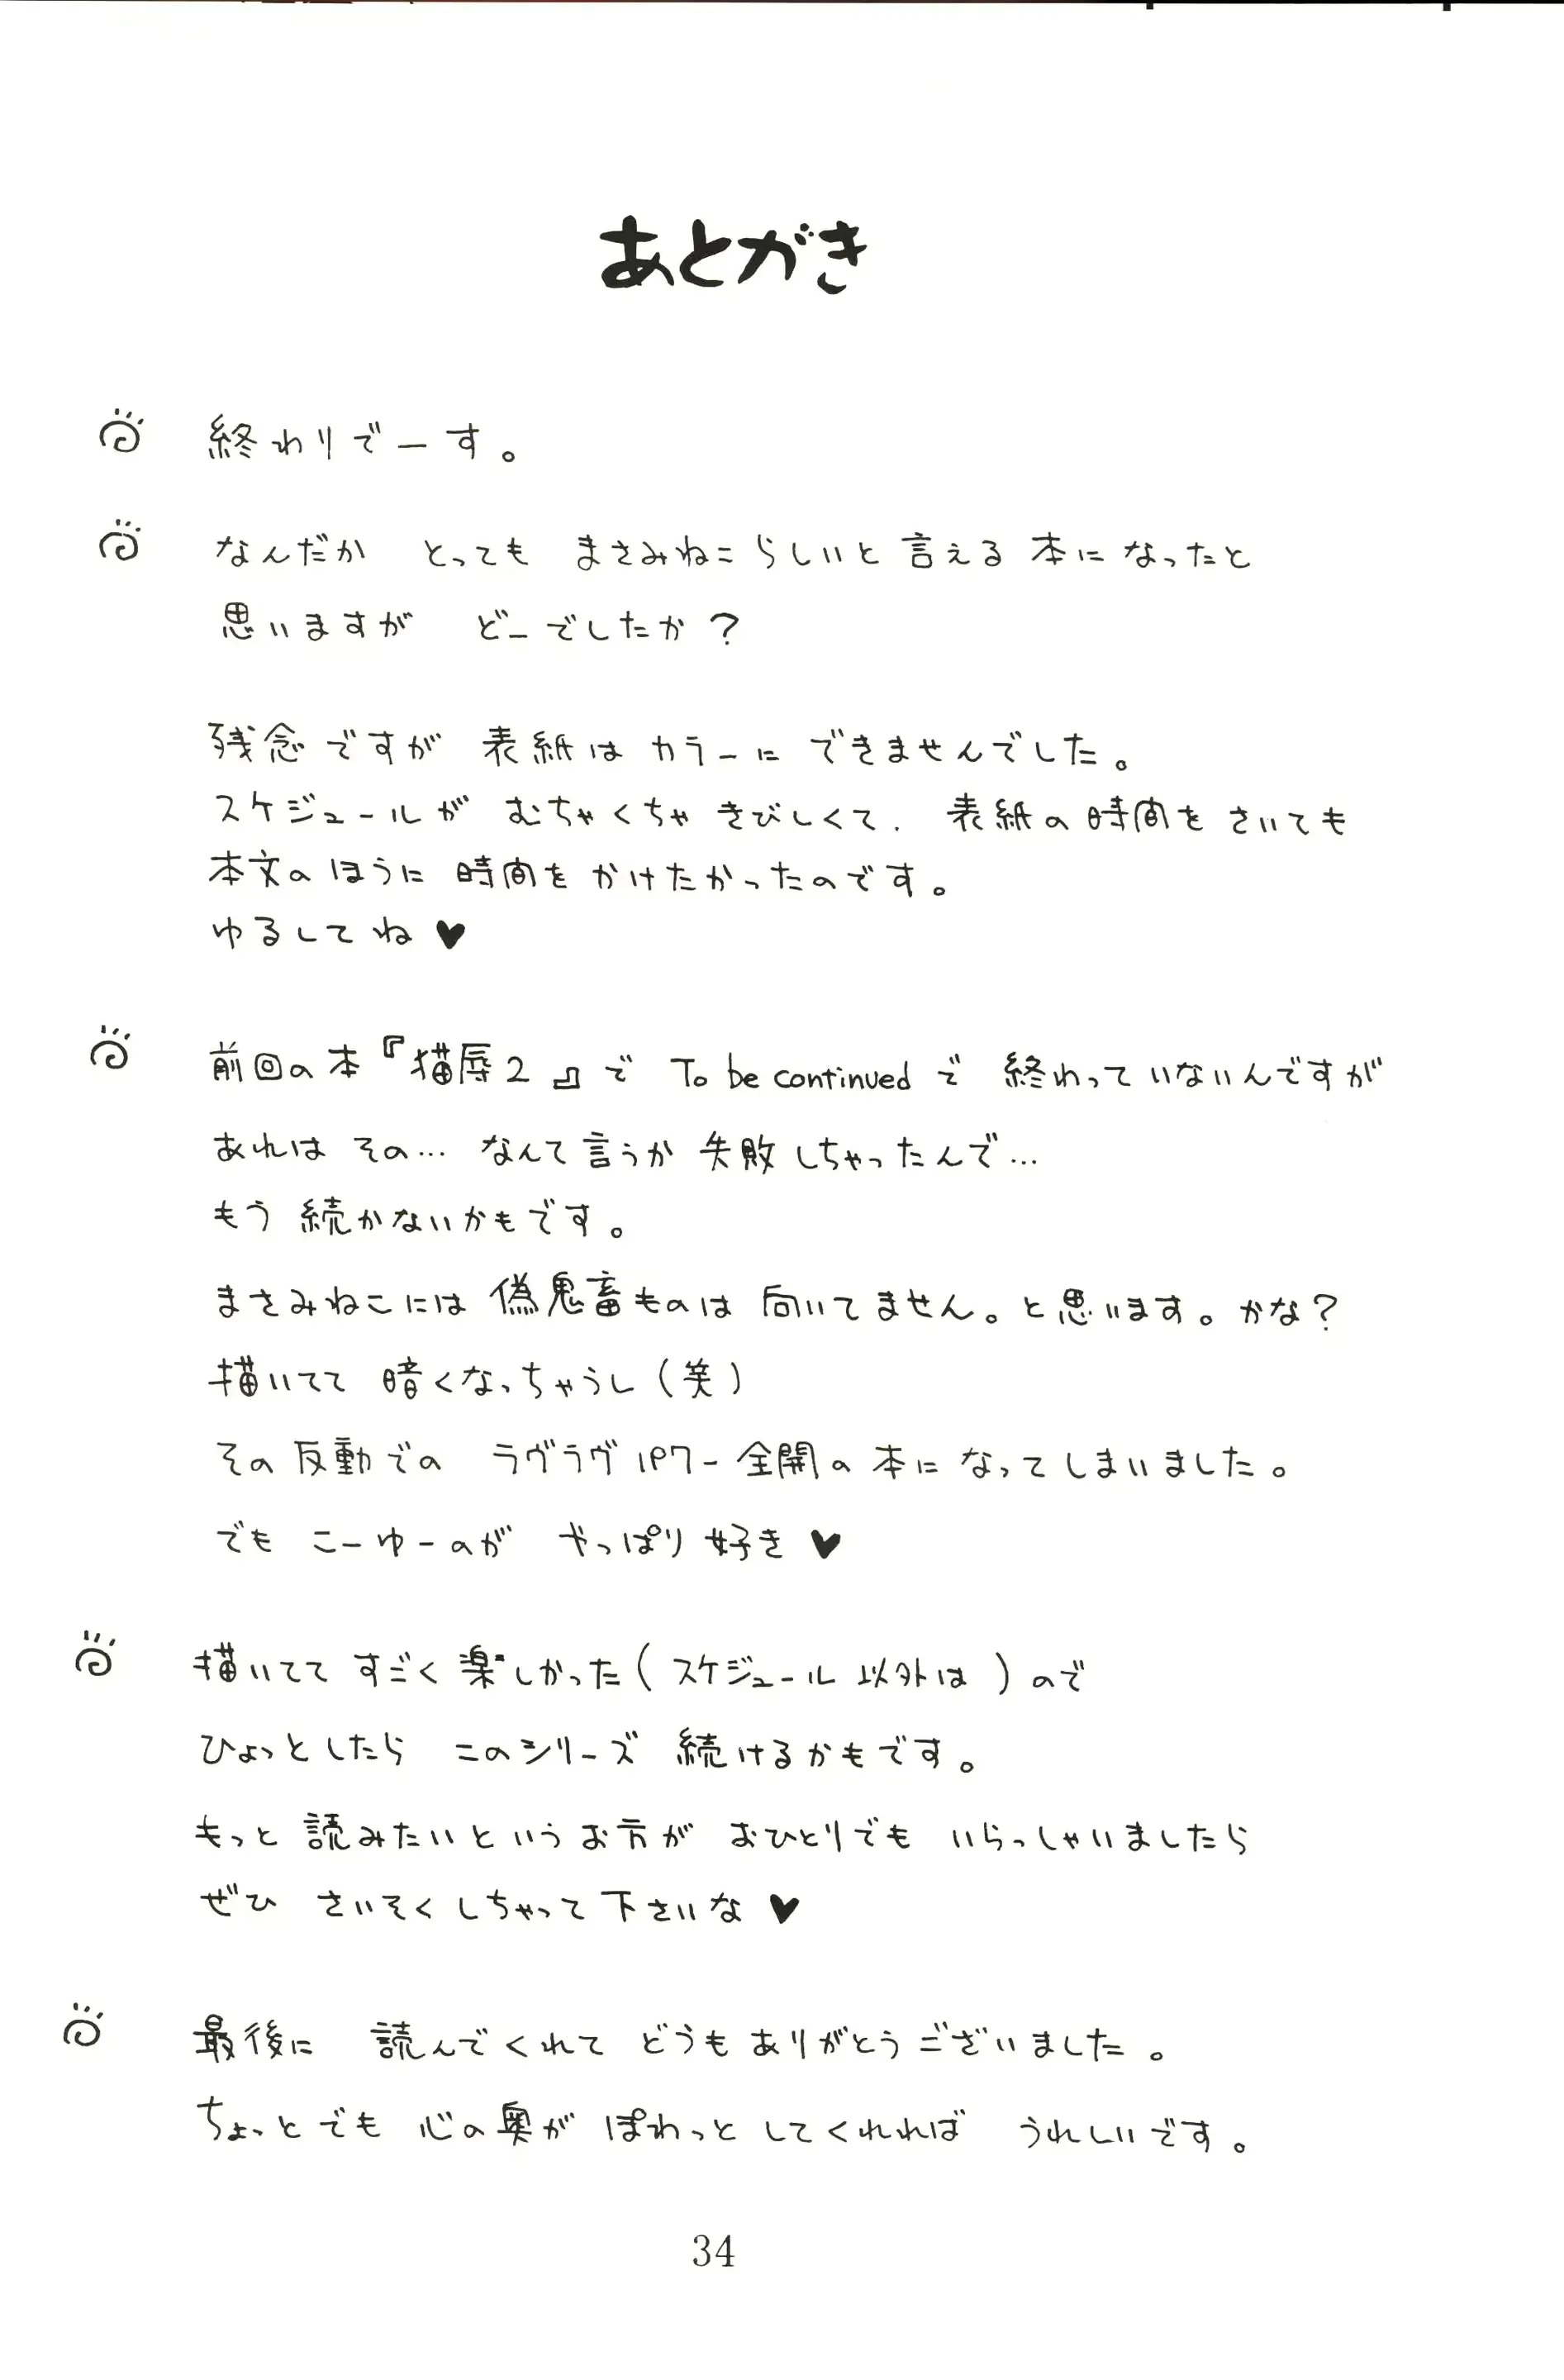 あとがき
終わりでーす。
なんだか とっても まさみねこらしいと言える本になったと
思いますが どーでしたか？
残念ですが 表紙は カラーに できませんでした。
スケジュールが むちゃくちゃ きびしくて、表紙の時間を さいても
本文のほうに 時間を かけたかったのです。
ゆるしてね♥
前回の本『猫辱2』で To be continued で 終わっていないんですが
あれは その… なんて言うか 失敗しちゃったんで…
もう 続かないかもです。
まさみねこには 偽鬼畜ものは 向いてません。と思います。かな？
描いてて 暗くなっちゃうし（笑）
その反動での ラヴラヴパワー全開の 本になってしまいました。
でも こーゆーのが やっぱり 好き♥
描いてて すごく 楽しかった（スケジュール 以外は）ので
ひょっとしたら このシリーズ 続けるかもです。
もっと 読みたいというお方が おひとりでも いらっしゃいましたら
ぜひ さいそくしちゃって下さいな♥
最後に 読んでくれて どうも ありがとうございました。
ちょっとでも 心の奥が ぽわっと してくれれば うれしいです。
34